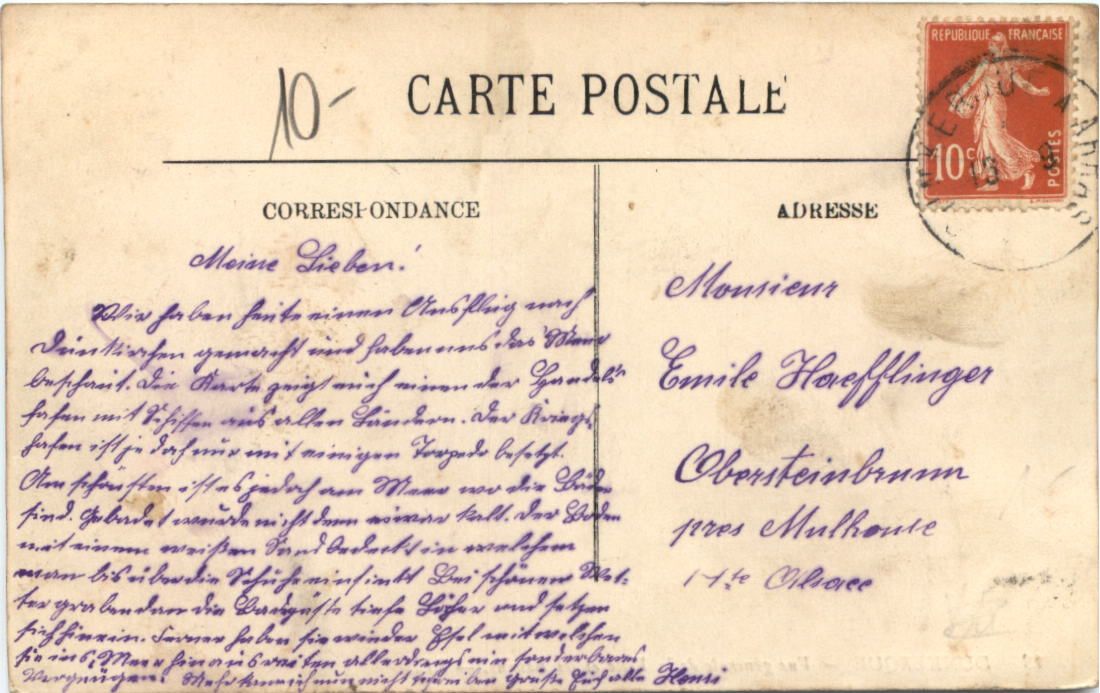 10-
CARTE POSTALE
REPUBLIQUE FRANÇAISE
10 c
POSTES
CORRESPONDANCE
Meine Lieben!
Wir haben heute einen Ausflug nach
Dünkirchen gemacht und haben uns das Meer
beschaut. Die Karte zeigt euch einen der Handels
hafen mit Schiffen aus allen Ländern. Der Kriegs
hafen ist jedoch nur mit einigen Torpedo besetzt.
Am schönsten ist es jedoch am Meer wo die Bäder
sind. Gebadet wurde nicht denn es war kalt. Der Boden
mit einem weißen Sand bedeckt in welchem
man bis über die Schuhe einsinkt Bei schönem Wet-
ter graben dan die Badgäste tiefe Löcher und setzen
sich hinein. Ferner haben sie wieder Esel mit welchen
sie ins Meer hinaus reiten allerdings ein sonderbares
Vergnügen. Mehr kann ich nun nicht schreiben Grüße Euch alle Henri
ADRESSE
Monsieur
Emile Haefflinger
Obersteinbrunn
pres Mulhouse
Hte Alsace